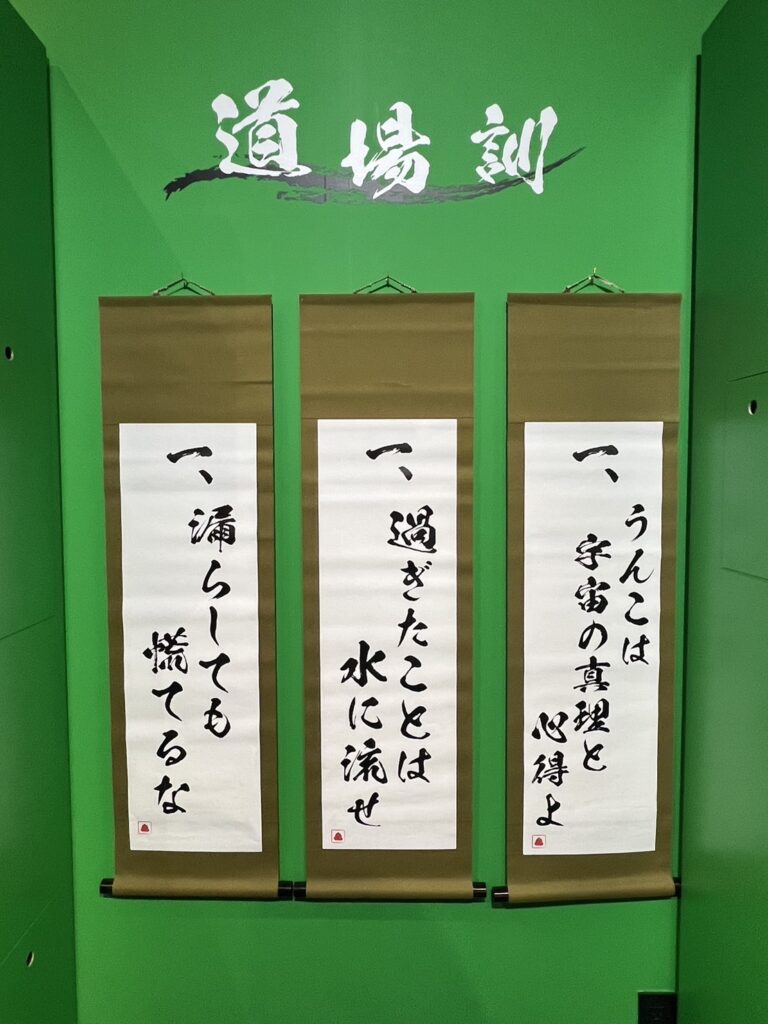 道場訓
一、うんこは
宇宙の真理と
心得よ
一、過ぎたことは
水に流せ
一、漏らしても
慌てるな